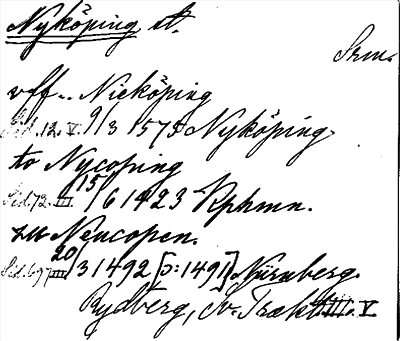 Nyköping st.
Srm.
vff.. Nieköping
Sid.12.V. 9/3 1575 Nyköping.
to Nycoping
Sid.72.III. 15/6 1423 Rphmn.
zu Neucopen.
Sid.697 III 20/3 1492 [ɔ: 1491] Nürnberg.
Rydberg, Sv. Trakt. V.